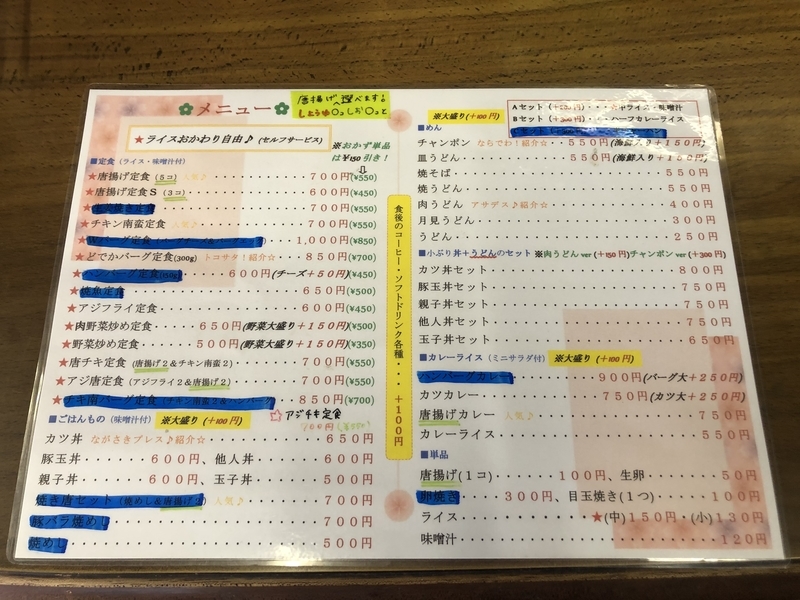 メニュー
唐揚げ選べます!
しょうゆ〇っしお〇っと
★ライスおかわり自由♪ (セルフサービス)
※おかず単品
は¥150引き!
■定食 (ライス・味噌汁付)
★唐揚げ定食 (5コ) 人気♪ 700円 (¥550)
★唐揚げ定食S (3コ) 600円 (¥450)
★ 700円 (¥550)
★チキン南蛮定食 人気♪ 700円 (¥550)
★Wバーグ定食 1,000円 (¥850)
★どでかバーグ定食(300g) トコサタ!紹介☆ 850円 (¥700)
★ハンバーグ定食(150g) 600円 (チーズ+50円) (¥450)
★焼魚定食 650円 (¥500)
★アジフライ定食 600円 (¥450)
★肉野菜炒め定食 650円 (野菜大盛り+150円) (¥500)
★野菜炒め定食 500円 (野菜大盛り+150円) (¥350)
★唐チキ定食 (唐揚げ2&チキン南蛮2) 700円 (¥550)
★アジ唐定食 (アジフライ2&唐揚げ2) 700円 (¥550)
★チキ南バーグ定食 (チキン南蛮2&ハンバーグ) 850円 (¥700)
☆アジチキ定食
700円 (¥550)
■ごはんもの (味噌汁付) ※大盛り (+100円)
カツ丼 ながさきプレス♪紹介☆ 650円
豚玉丼 600円、他人丼 600円
親子丼 600円、玉子丼 500円
焼き唐セット (焼めし&唐揚げ3) 人気♪ 700円
豚バラ焼めし 700円
焼めし 500円
食後のコーヒー・ソフトドリンク各種・・・+100円
※大盛り (+100円)
Aセット (+200円)・・・☆中ライス・味噌汁
Bセット (+300円)・・・ハーフカレーライス
■めん
チャンポン ならでわ!紹介☆ 550円 (海鮮入り+150円)
皿うどん 550円 (海鮮入り+150円)
焼そば 550円
焼うどん 550円
肉うどん アサデス♪紹介☆ 400円
月見うどん 300円
うどん 250円
■小ぶり丼+うどんのセット ※肉うどんver (+150円) チャンポンver (+300円)
カツ丼セット 800円
豚玉丼セット 750円
親子丼セット 750円
他人丼セット 750円
玉子丼セット 650円
■カレーライス (ミニサラダ付) ※大盛り (+100円)
ハンバーグカレー 900円 (バーグ大+250円)
カツカレー 750円 (カツ大+250円)
唐揚げカレー 人気♪ 750円
カレーライス 550円
■単品
唐揚げ(1コ) 100円、生卵 50円
卵焼き 300円、目玉焼き(1つ) 100円
ライス ★(中)150円・(小)130円
味噌汁 120円